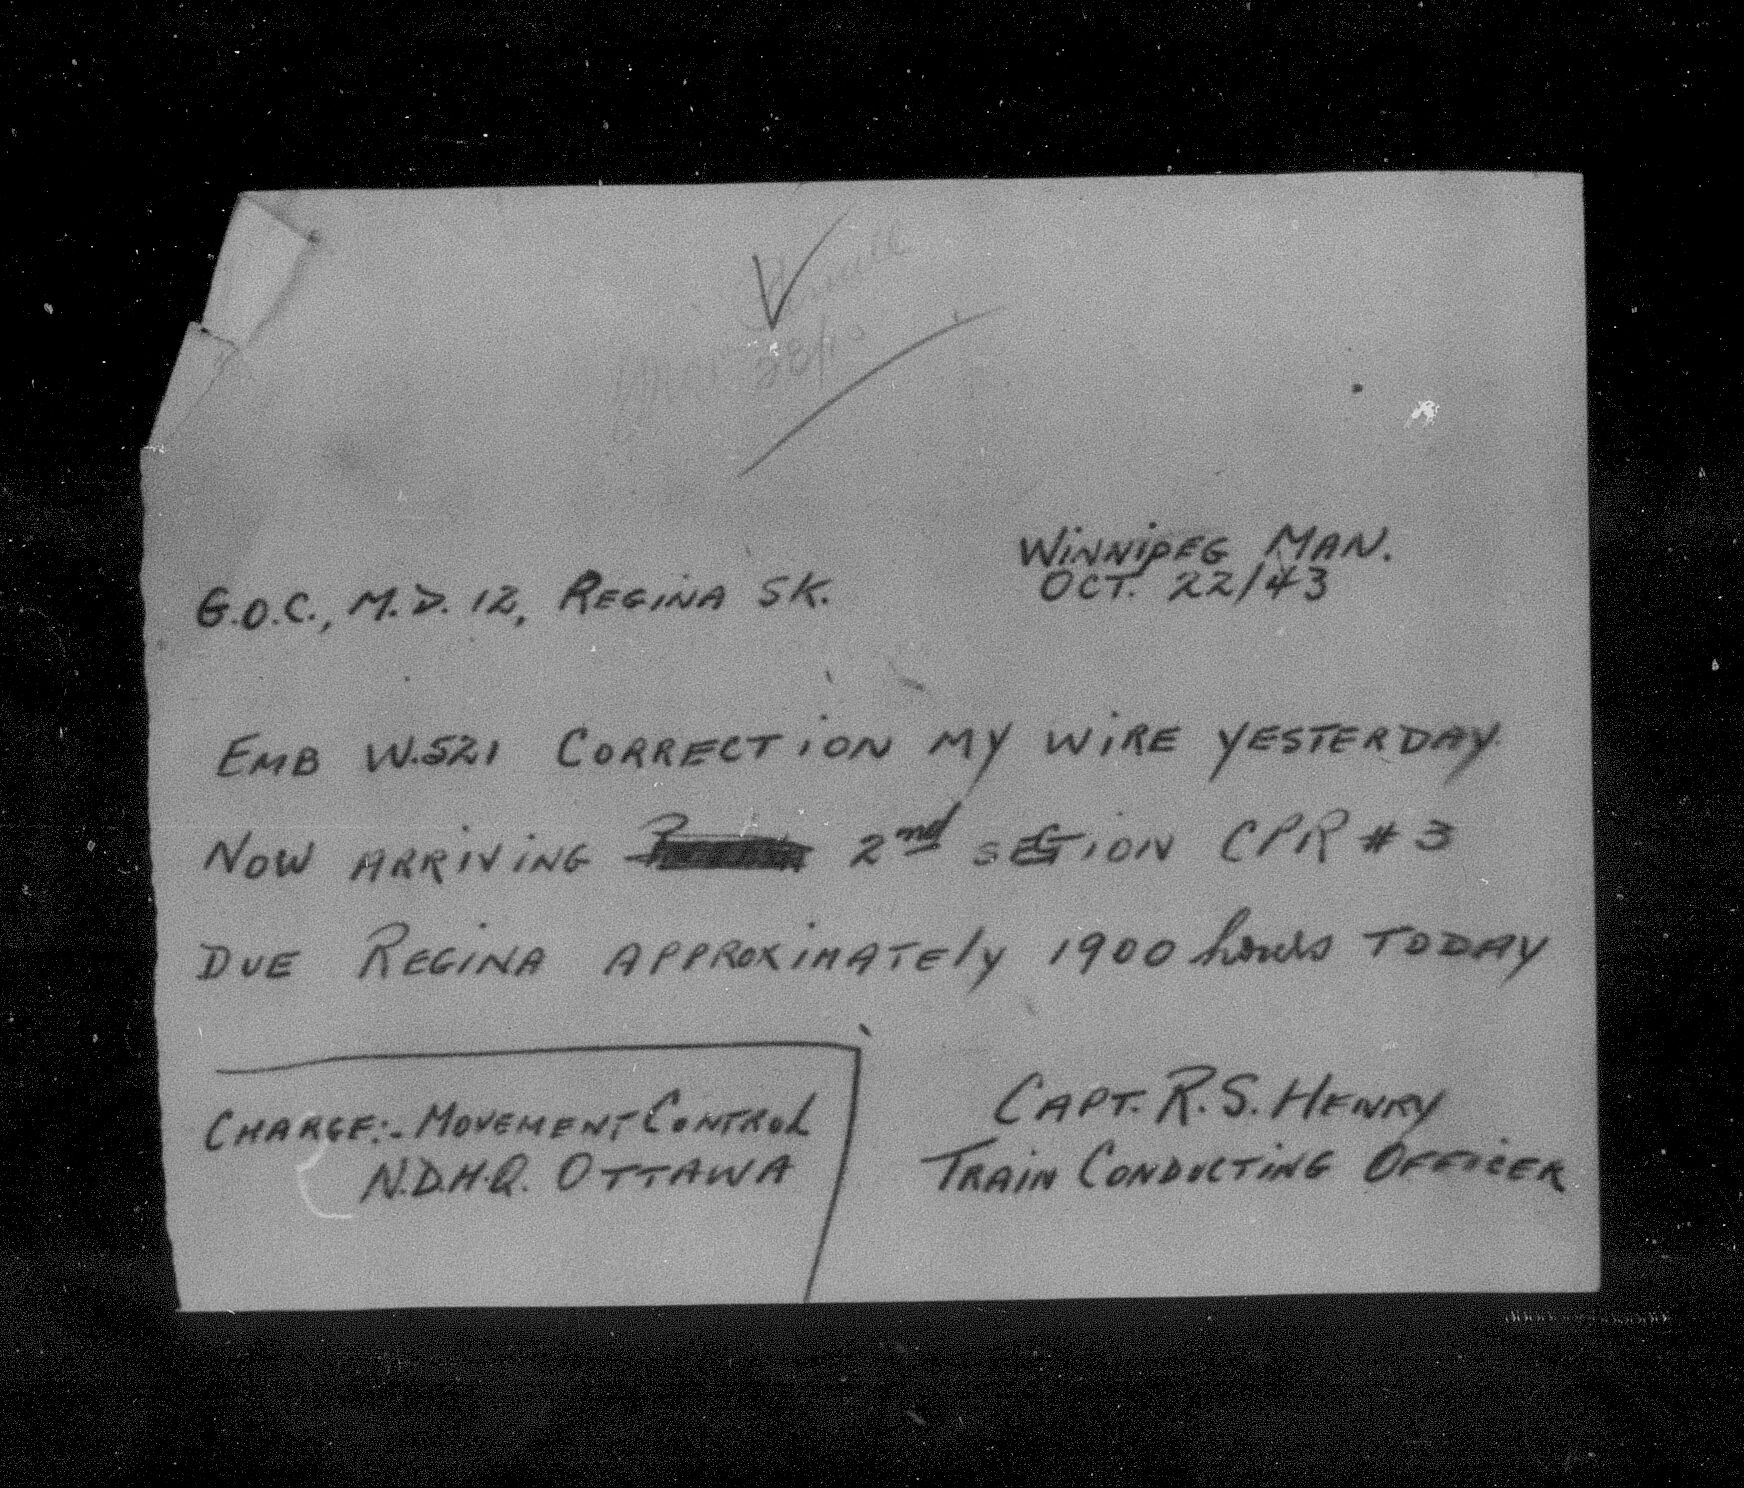 28/10
WINNIPEG MAN.
OCT. 22/43
G.O.C., M.D. 12, REGINA SK.
EMB W.521 CORRECTION MY WIRE YESTERDAY.
NOW ARRIVING 2nd SECTION CPR # 3
DUE REGINA APPROXIMATELY 1900 hours TODAY
CHARGE:- MOVEMENT CONTROL
N.D.H.Q. OTTAWA
CAPT. R.S. HENRY
TRAIN CONDUCTING OFFICER